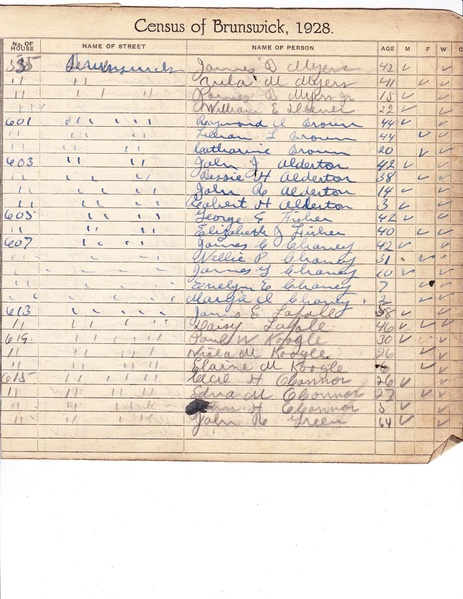 Census of Brunswick, 1928.
No. OF HOUSE NAME OF STREET NAME OF PERSON AGE M F W
535 Brunswick James D Myers 42 ✓ ✓
" " " " M Myers 41 ✓ ✓
" " " " James D Myers Jr 15 ✓ ✓
" " " " William E 22 ✓ ✓
601 " " " " Raymond A Crown 44 ✓ ✓
" " " " Lillian L Crown 44 ✓ ✓
" " " " Catharine Crown 20 ✓ ✓
603 " " " " John J Alderton 42 ✓ ✓
" " " " Bessie H Alderton 38 ✓ ✓
" " " " John R Alderton 14 ✓ ✓
" " " " Robert H Alderton 3 ✓ ✓
605 " " " " George E Fisher 42 ✓ ✓
" " " " Elizabeth J Fisher 40 ✓ ✓
607 " " " " James C Chaney 42 ✓ ✓
" " " " Nellie P Chaney 31 ✓ ✓
" " " " James Chaney 10 ✓ ✓
" " " " Evelyn E Chaney 7 ✓ ✓
" " " " Margie Chaney 2 ✓ ✓
613 " " " " James E 58 ✓ ✓
" " " " Daisy 46 ✓ ✓
619 " " " " Paul W Koogle 30 ✓ ✓
" " " " M Koogle 26 ✓ ✓
" " " " Elaine M Koogle ✓ ✓
615 " " " " Cecil H O'Connor 26 ✓ ✓
" " " " Edna M O'Connor 27 ✓ ✓
" " " " H O'Connor 5 ✓ ✓
" " " " John Green 64 ✓ ✓